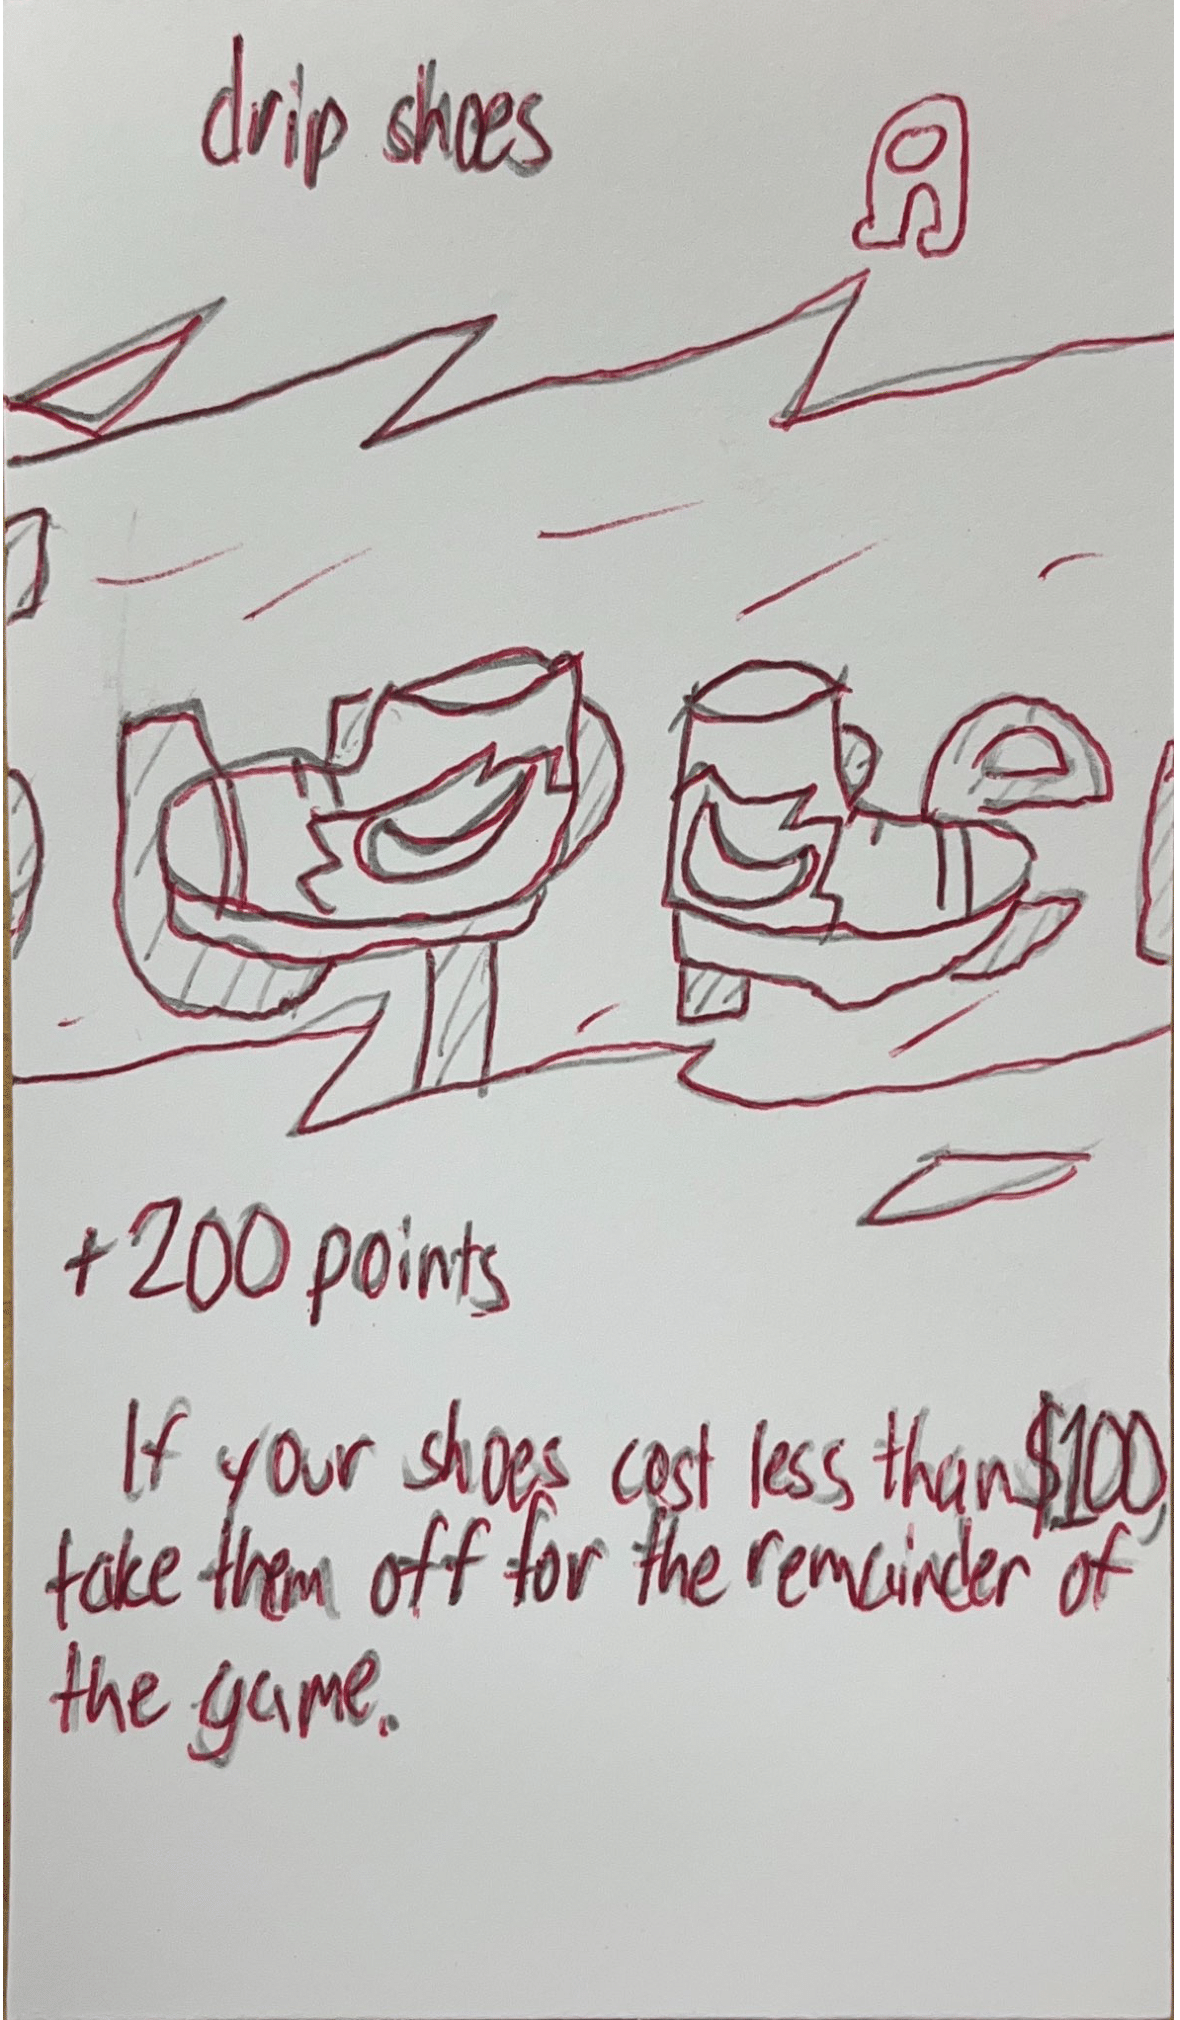 drip shoes
+200 points
If your shoes cost less than $100,
take them off for the remainder of
the game.